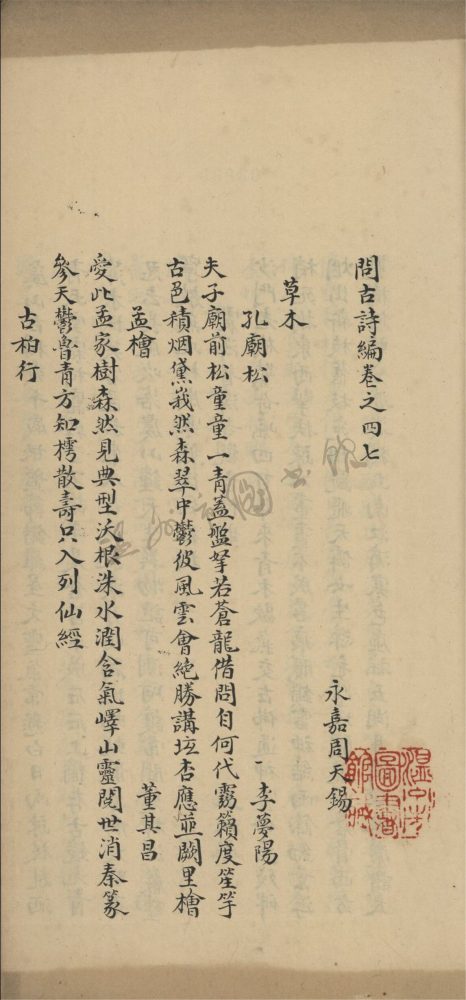 問古詩編卷之四七
永嘉周天錫
草木
孔廟松
李夢陽
夫子廟前松童童一青蓋盤拏若蒼龍借問自何代霧籟度笙竽
古色積烟黛峩然森翠中鬱彼風雲會絶勝講坛杏應並闕里檜
孟檜
董其昌
愛此孟家樹森然見典型沃根洙水潤含氣嶧山靈閱世消秦篆
參天鬱魯青方知樗散壽只入列仙經
古柏行